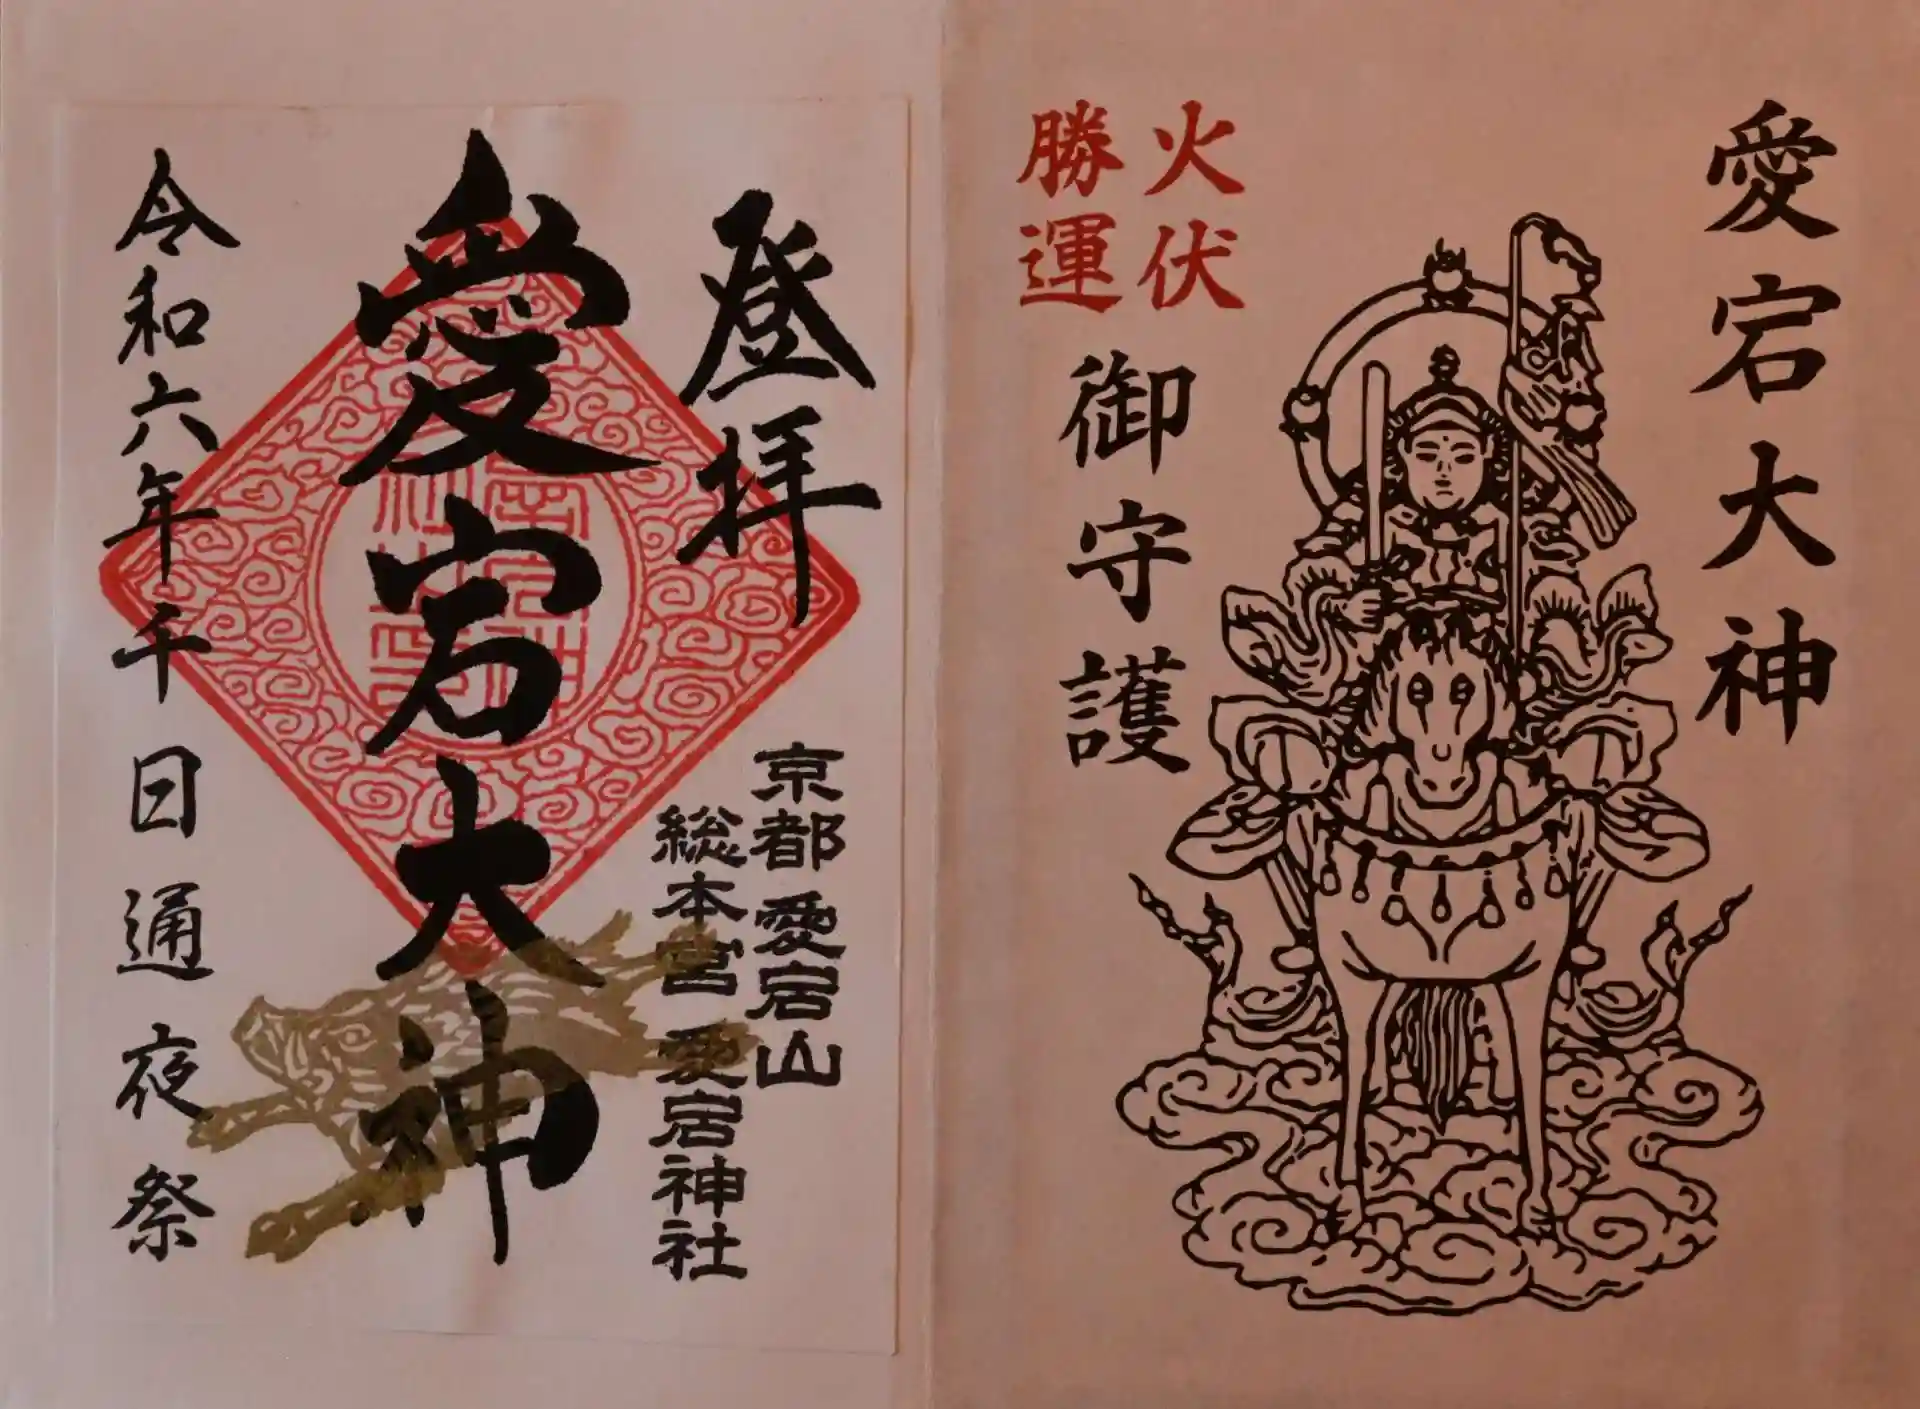 愛宕大神
火伏
勝運
御守護
登拝
京都愛宕山
総本宮 愛宕神社
愛宕大神
令和六年千日通夜祭